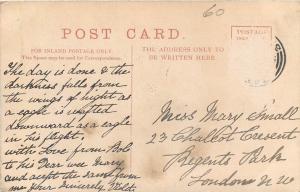 60
POST CARD.
FOR INLAND POSTAGE ONLY.
THE ADDRESS ONLY TO
BE WRITTEN HERE
The day is done & the
darkness falls from
the wings of night as
a eagle is wafted
downward as a eagle
in his flight.
with Love from Bob
to his Dear wee Mary
and accept the same from
me your sincerely
Miss Mary Small
23 Chalcot Crescent
Regents Park
London N W